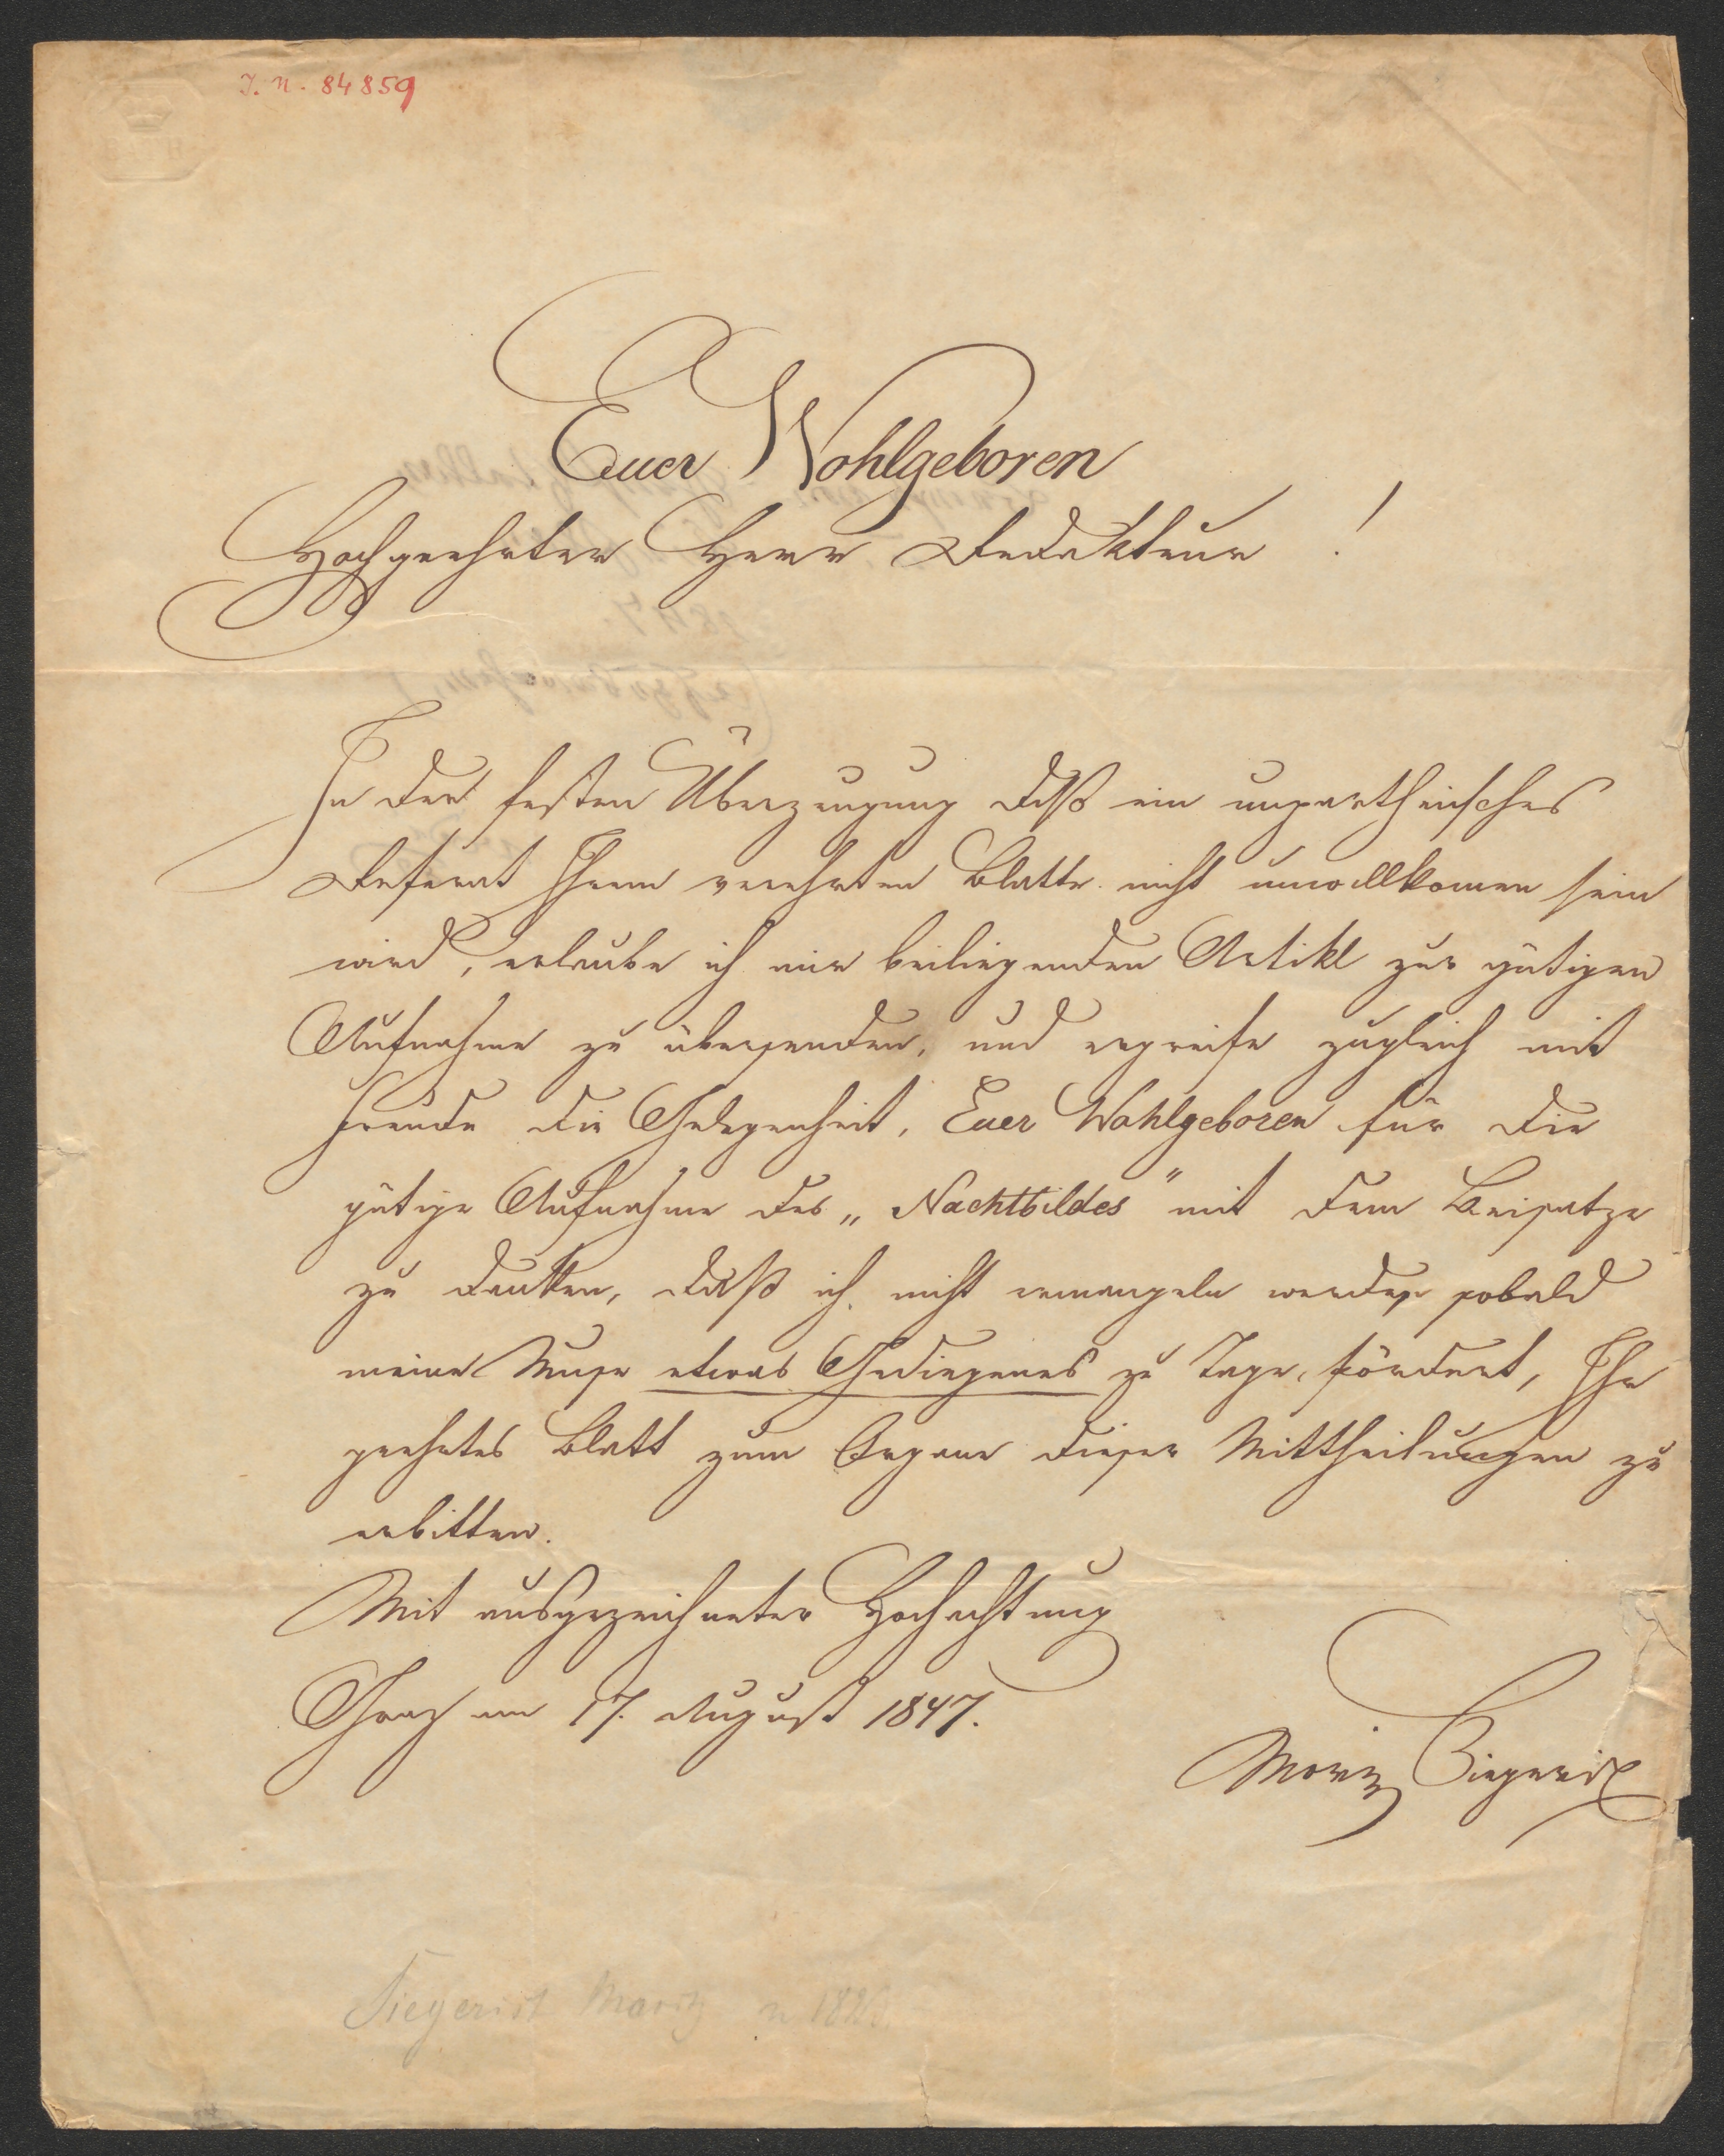 J. N. 84859
Euer Wohlgeboren
Hochgeehrter Herr Redakteur !
In der festen Überzeugung daß ein unpartheiisches
Referat Ihrem verehrten Blatte nicht unwillkomen sein
wird, erlaube ich mir beiliegenden Artikl zur gütigen
Aufnahme zu übersenden, und ergreife zugleich mit
Freude die Gelegenheit, Euer Wohlgeboren für die
gütige Aufnahme des „Nachtbildes" mit dem Beisatze
zu danken, daß ich nicht ermangeln werde, sobald
meine Muse etwas Gediegenes zu Tage fördert, Ihr
geehrtes Blatt zum Organe dieser Mittheilungen zu
erbitten.
Mit ausgezeichneter Hochachtung
Graz am 17. August 1847.
Moriz Siegerist
Siegerist Moritz